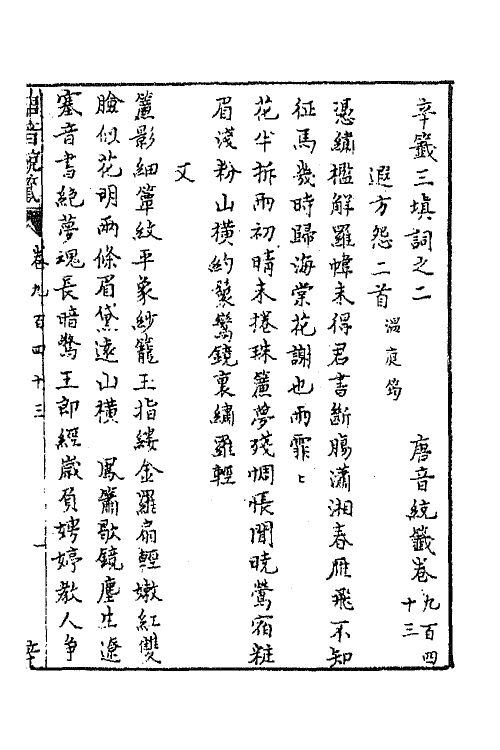 辛籤三填詞之二 唐音統籤卷九百四十三
遐方怨二首 溫庭筠
憑繡檻解羅幃未得君書斷腸瀟湘春雁飛不知
征馬幾時歸海棠花謝也雨霏〻
花半拆雨初晴未捲珠簾夢殘惆悵聞曉鶯宿粧
眉淺粉山橫約鬟鸞鏡裏繡羅輕
又
簾影細簟紋平象紗籠玉指縷金羅扇輕嫩紅雙
臉似花明兩條眉黛遠山橫 鳳簫歇鏡塵生遼
塞音書絕夢魂長暗驚玉郎經歲負娉婷教人爭
唐音統籤 卷九百四十三 一 辛